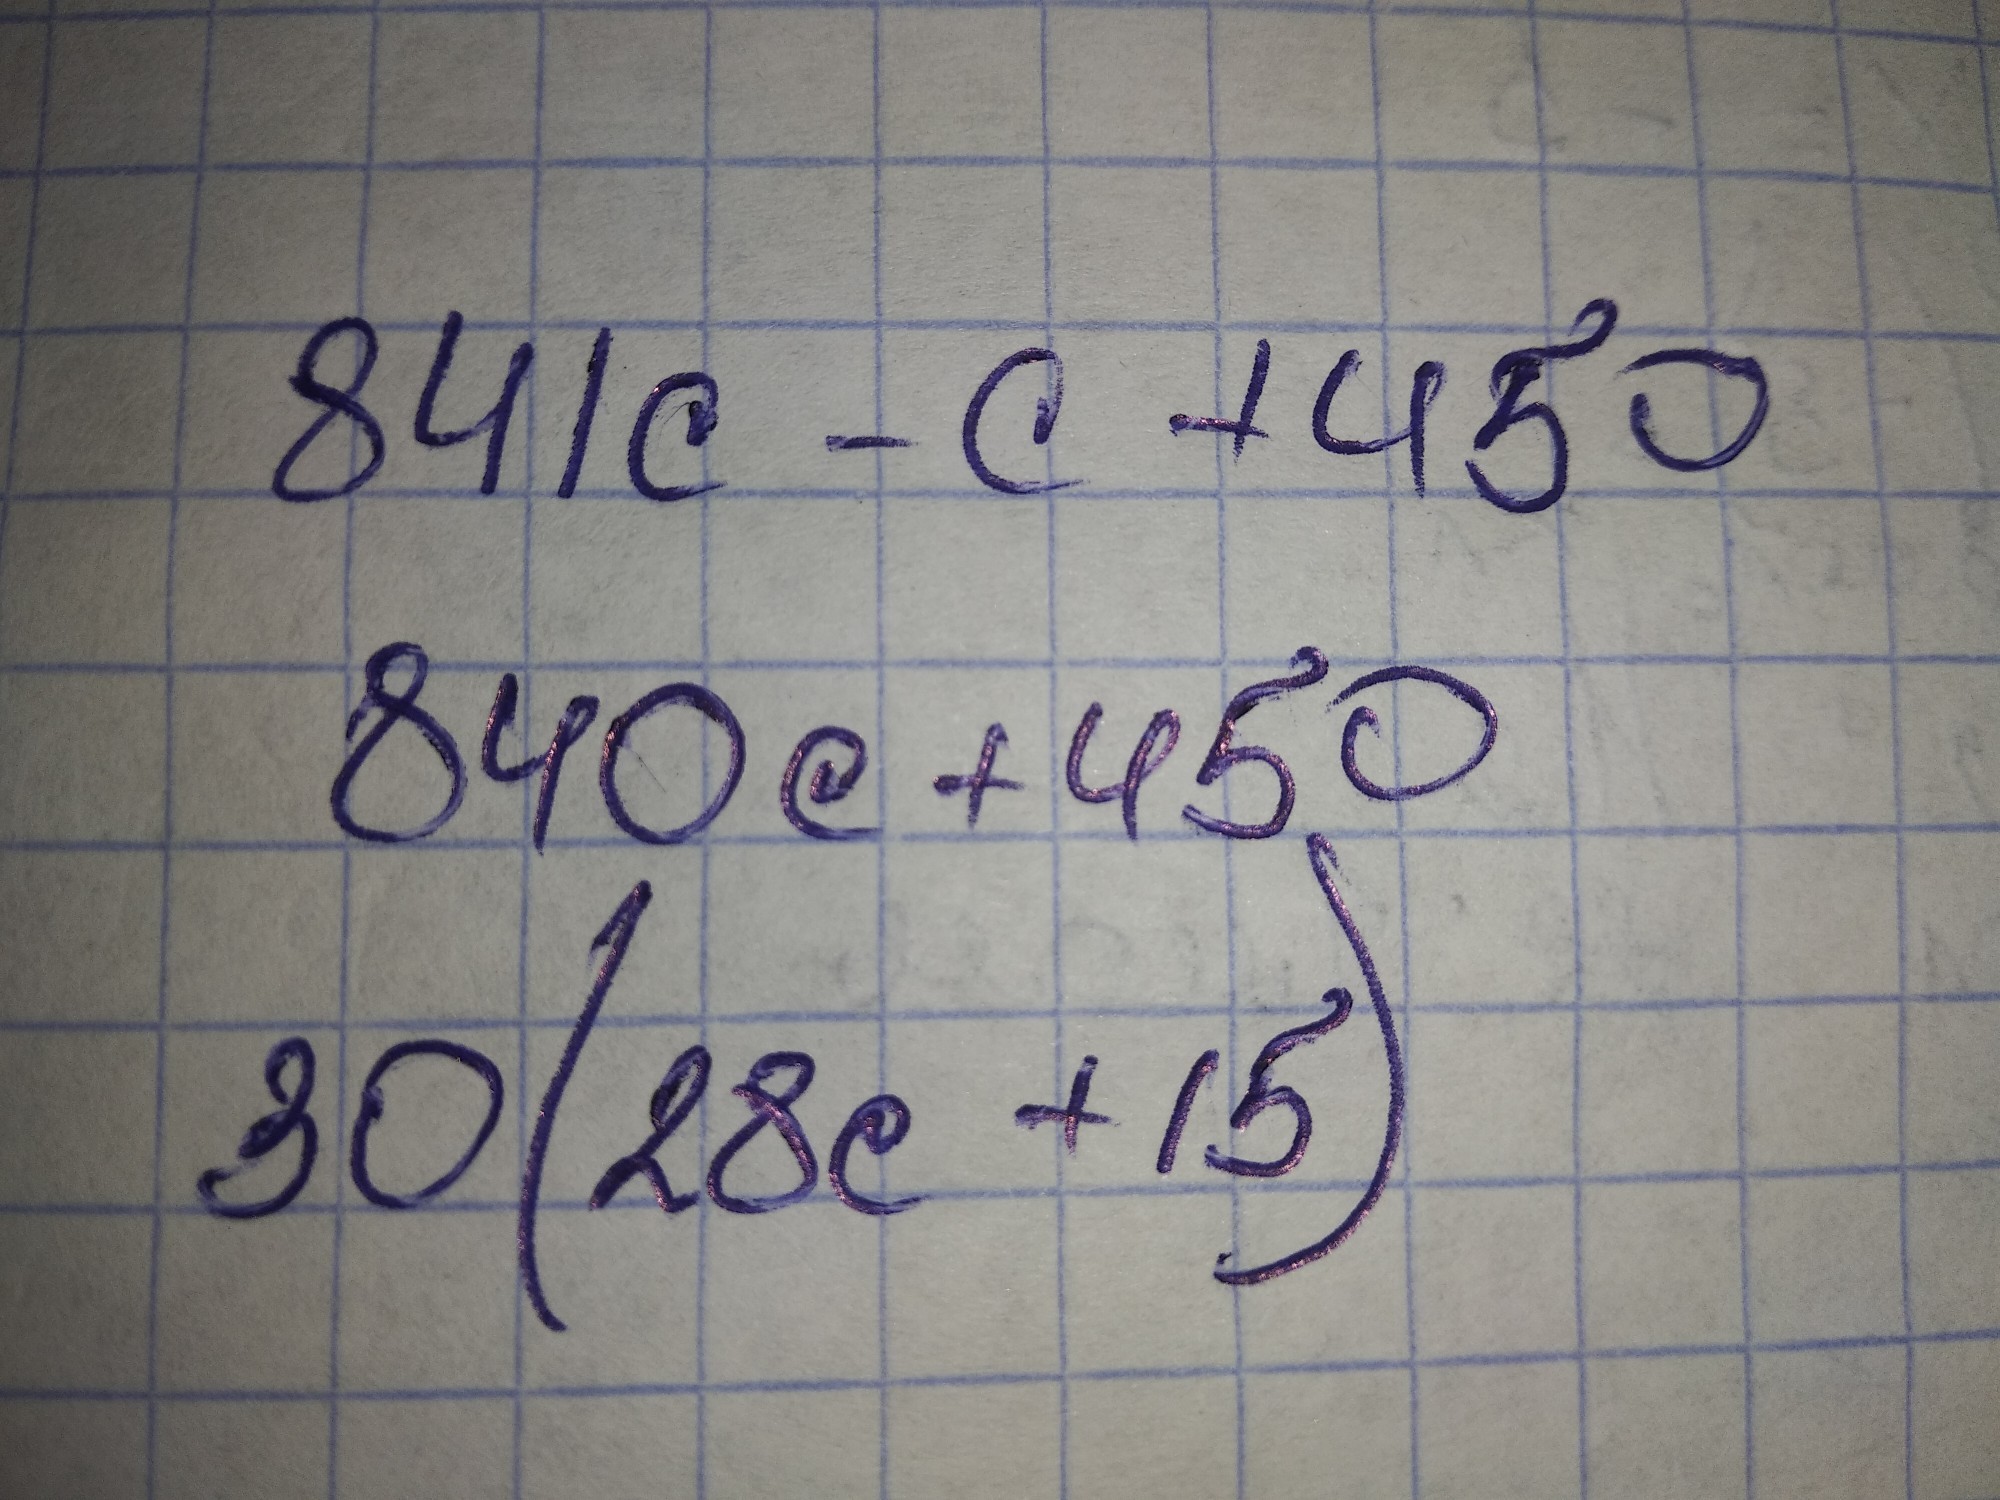 841c - c + 450
840c + 450
30(28c + 15)